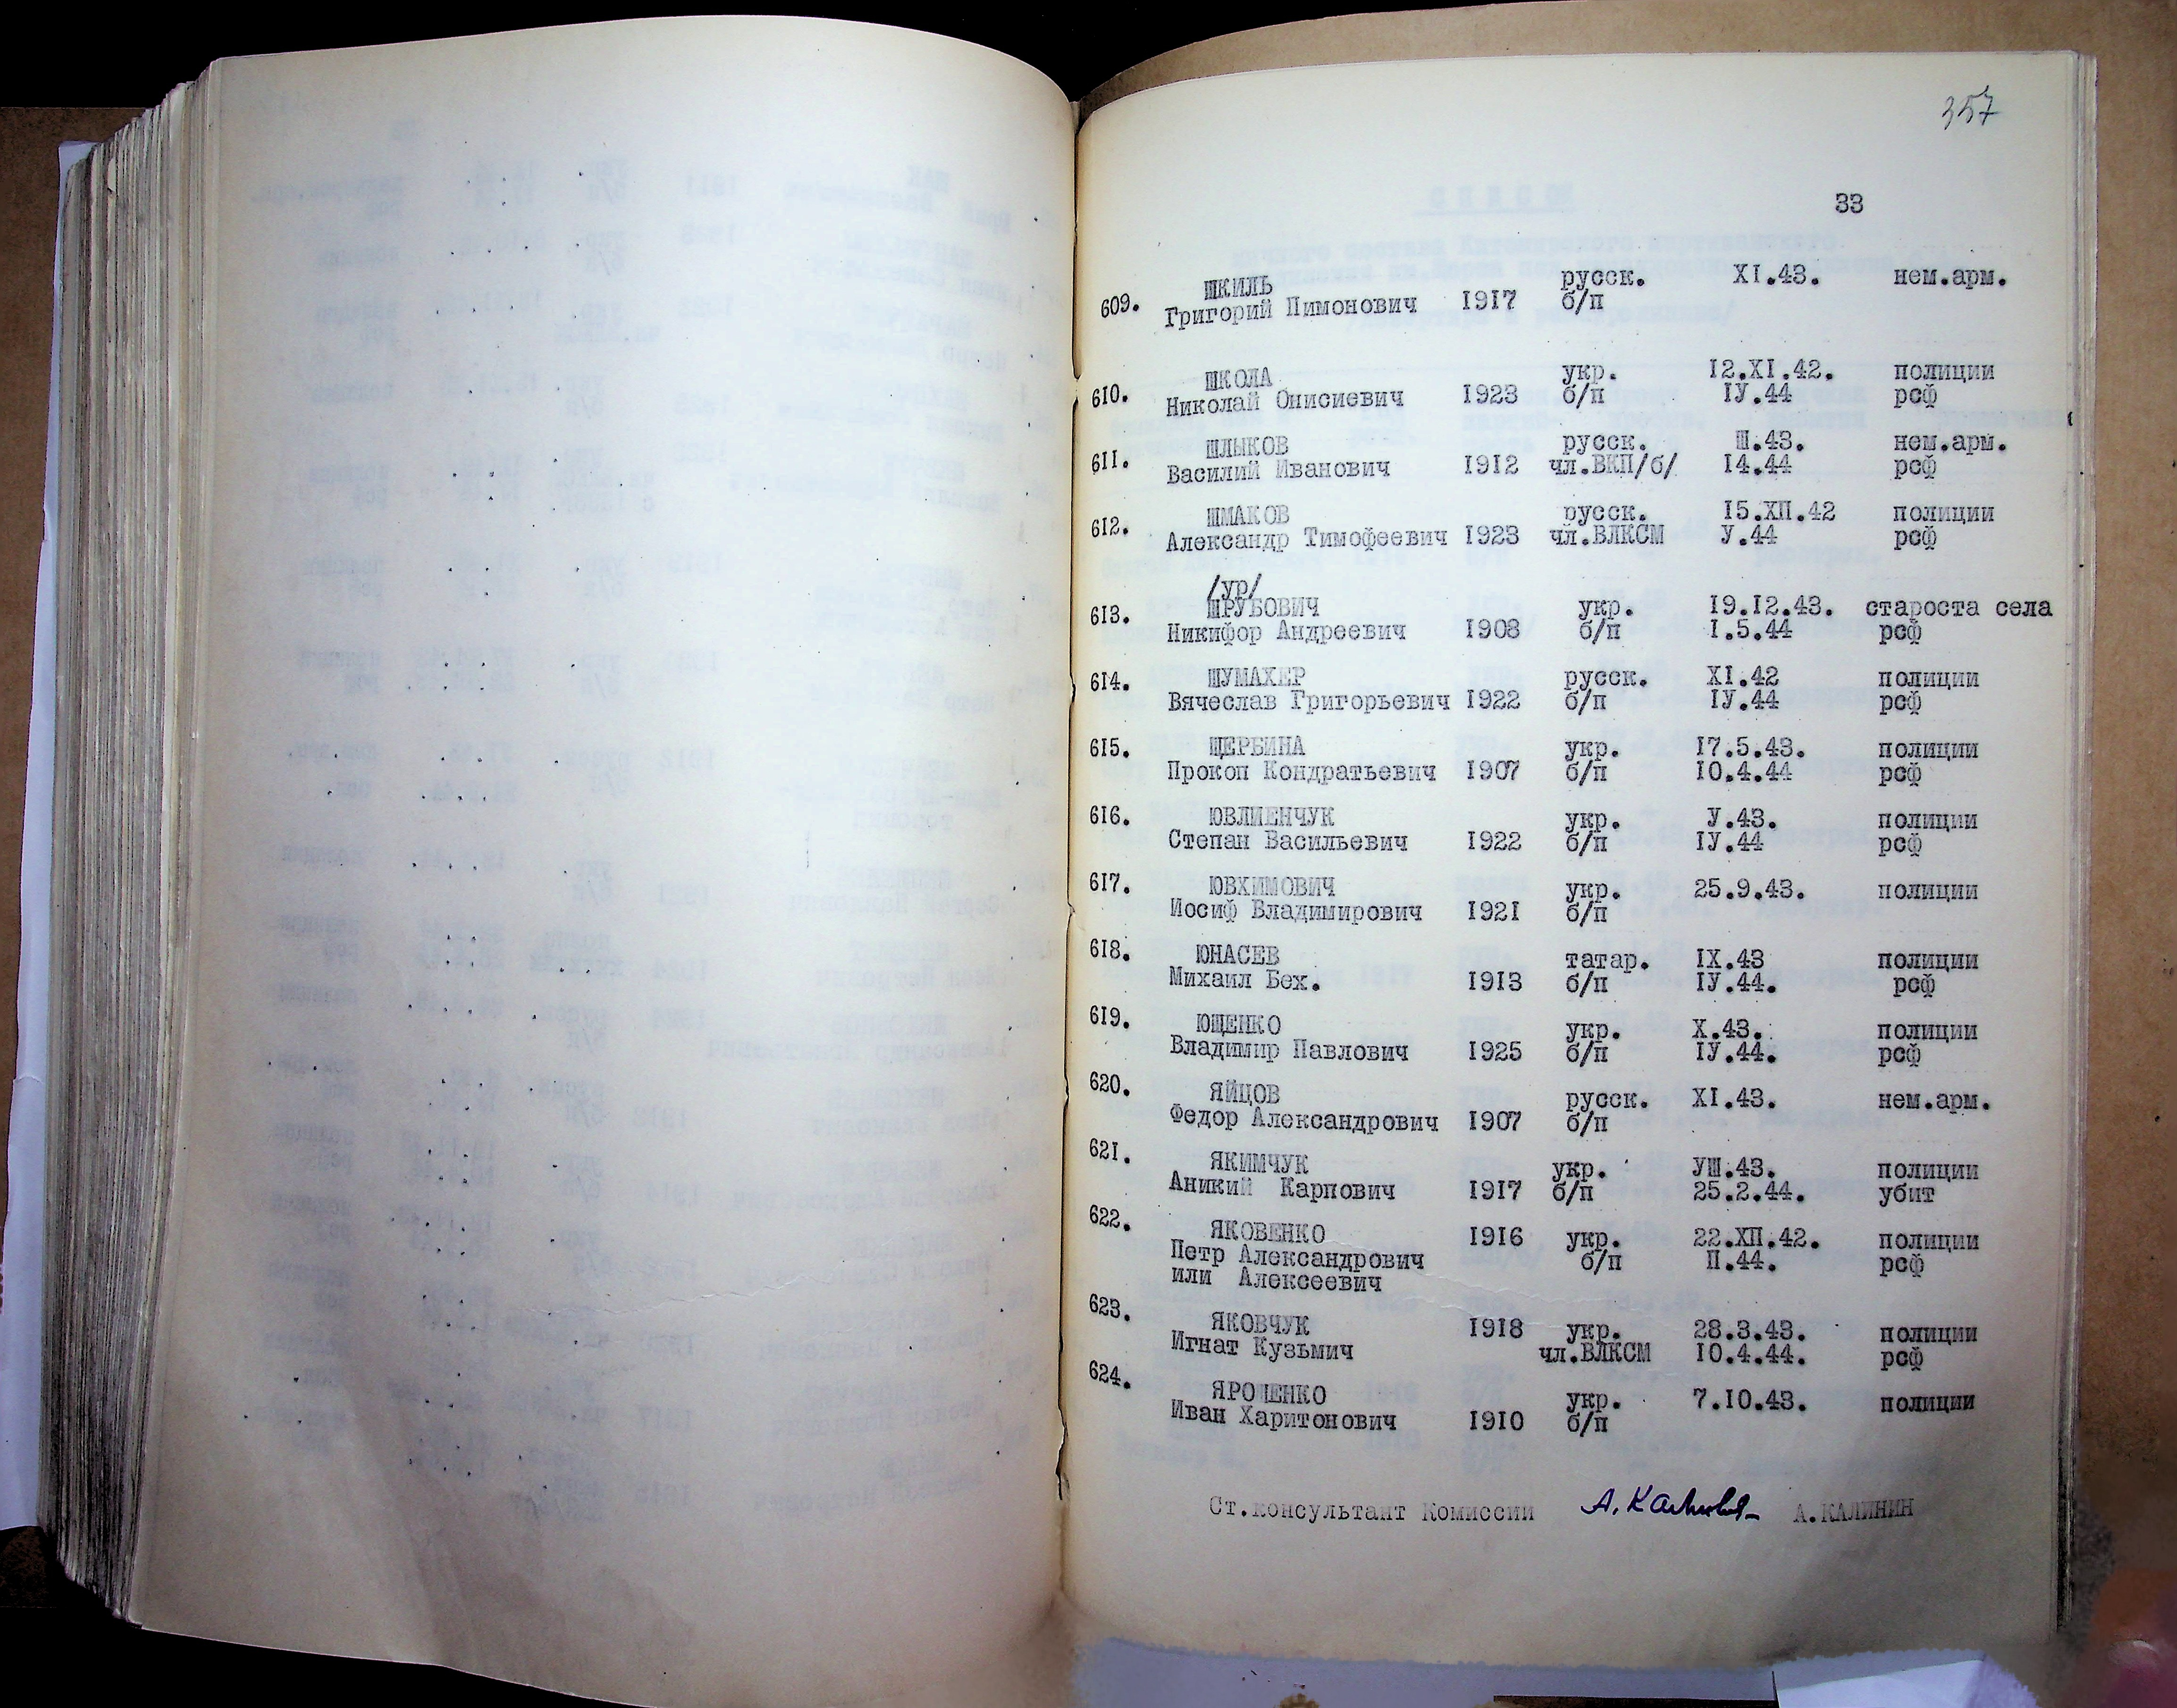 357
33
609. ШКИЛЬ русск. XI.43. нем.арм.
Григорий Пимонович 1917 б/п
610. ШКОЛА укр. I2.XI.42. полиции
Николай Онисиевич 1923 б/п IУ.44 рсф
611. ШЛЫКОВ русск. Ш.43. нем.арм.
Василий Иванович 1912 чл.ВКП/б/ I4.44 рсф
612. ШМАКОВ русск. I5.ХП.42 полиции
Александр Тимофеевич 1923 чл.ВЛКСМ У.44 рсф
/ур/
613. ШРУБОВИЧ укр. I9.I2.43. староста села
Никифор Андреевич 1908 б/п I.5.44 рсф
614. ШУМАХЕР русск. XI.42 полиции
Вячеслав Григорьевич 1922 б/п IУ.44 рсф
615. ЩЕРБИНА укр. I7.5.43. полиции
Прокоп Кондратьевич 1907 б/п I0.4.44 рсф
616. ЮВЛИЕНЧУК укр. У.43. полиции
Степан Васильевич 1922 б/п IУ.44 рсф
617. ЮВХИМОВИЧ укр. 25.9.43. полиции
Иосиф Владимирович 1921 б/п
618. ЮНАСЕВ татар. IX.43 полиции
Михаил Бех. 1913 б/п IУ.44. рсф
619. ЮЩЕНКО укр. X.43. полиции
Владимир Павлович 1925 б/п IУ.44. рсф
620. ЯЙЦОВ русск. XI.43. нем.арм.
Федор Александрович 1907 б/п
621. ЯКИМЧУК укр. УШ.43. полиции
Аникий Карпович 1917 б/п 25.2.44. убит
622. ЯКОВЕНКО 1916 укр. 22.ХП.42. полиции
Петр Александрович б/п П.44. рсф
или Алексеевич
623. ЯКОВЧУК 1918 укр. 28.3.43. полиции
Игнат Кузьмич чл.ВЛКСМ I0.4.44. рсф
624. ЯРОШЕНКО укр. 7.I0.43. полиции
Иван Харитонович 1910 б/п
Ст.консультант Комиссии А. Калинин А.КАЛИНИН